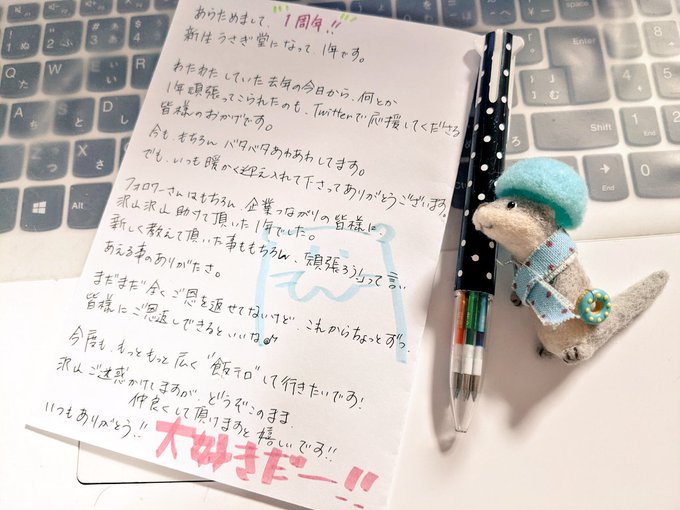 あらためまして、1周年!!
新生うさぎ堂になって、1年です。
わたわたしていた去年の今日から、何とか
1年頑張ってこられたのも、Twitterで応援してくださる
皆様のおかげです。
今も、もちろん バタバタあわあわしてます。
でも、いつも暖かく迎え入れて下さってありがとうございます。
フォロワーさんはもちろん、企業つながりの皆様に
沢山沢山助けて頂いた1年でした。
新しく教えて頂いた事ももちろん、「頑張ろう!」って言い
あえる事のありがたさ。
まだまだ全くご恩を返せてないけど、これからちょっとずつ
皆様にご恩返しできるといいな
今度も、もっともっと広く"飯テロ"して行きたいです!
沢山ご迷惑かけしますが、どうぞこのまま
仲良くして頂けますと嬉しいです!!
いつもありがとう!!
大好きだー!!
Q
W
E
R
A
S
D
Z
Shift
Enter
End